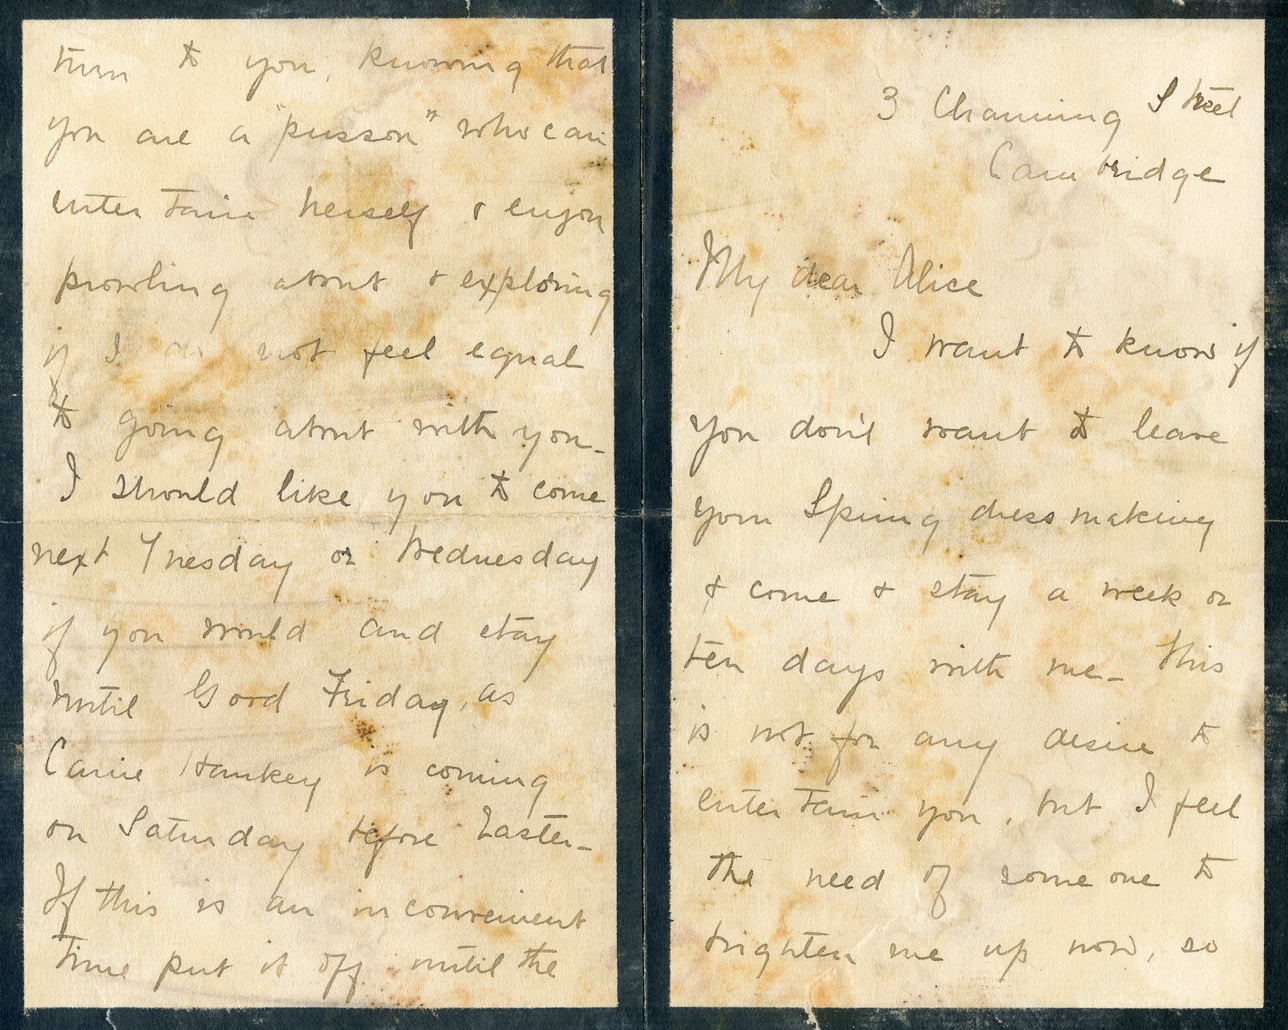 3 Channing Street
Cambridge
My dear Alice
I want to know if
you don't want to leave
your Spring dressmaking
& come & stay a week or
ten days with me – This
is not for any desire to
entertain you, but I feel
the need of some one to
brighten me up now, so
turn to you, knowing that
you are a "pusson" who can
entertain herself & enjoy
prowling about & exploring
if I do not feel equal
to going about with you –
I should like you to come
next Tuesday or Wednesday
if you would and stay
until Good Friday, as
Carrie Hankey is coming
on Saturday before Easter –
If this is an inconvenient
time put it off until the